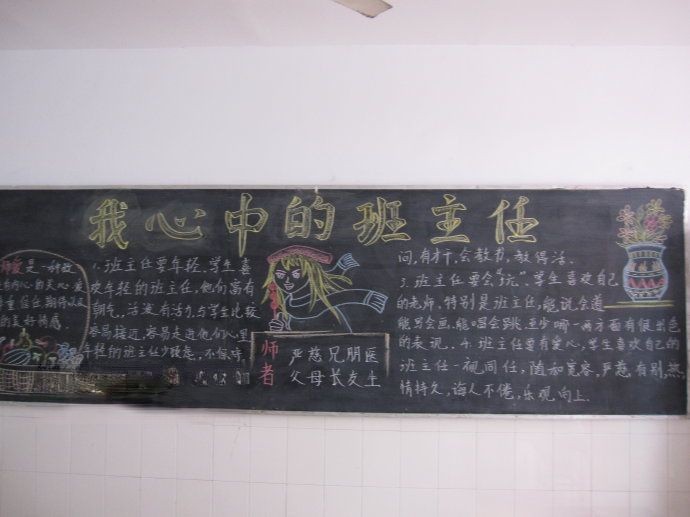 我心中的班主任
师爱是一种教
重信任期待以及
的美好情感
1.班主任要年轻、学生喜
欢年轻的班主任、他们富有
朝气、活泼有活力与学生比较
容易接近、容易走进他们心里
年轻的班主任少
师者
严慈兄朋医
父母长友生
问,有才干,会教书,教得活。
3.班主任要会“玩”、学生喜欢自己
的老师,特别是班主任,能说会道
能写会画,能唱会跳,至少哪一两方面有很出色
的表现。4.班主任要有爱心,学生喜欢自己的
班主任一视同仁,随和宽容,严慈有别,热
情持久,诲人不倦,乐观向上。